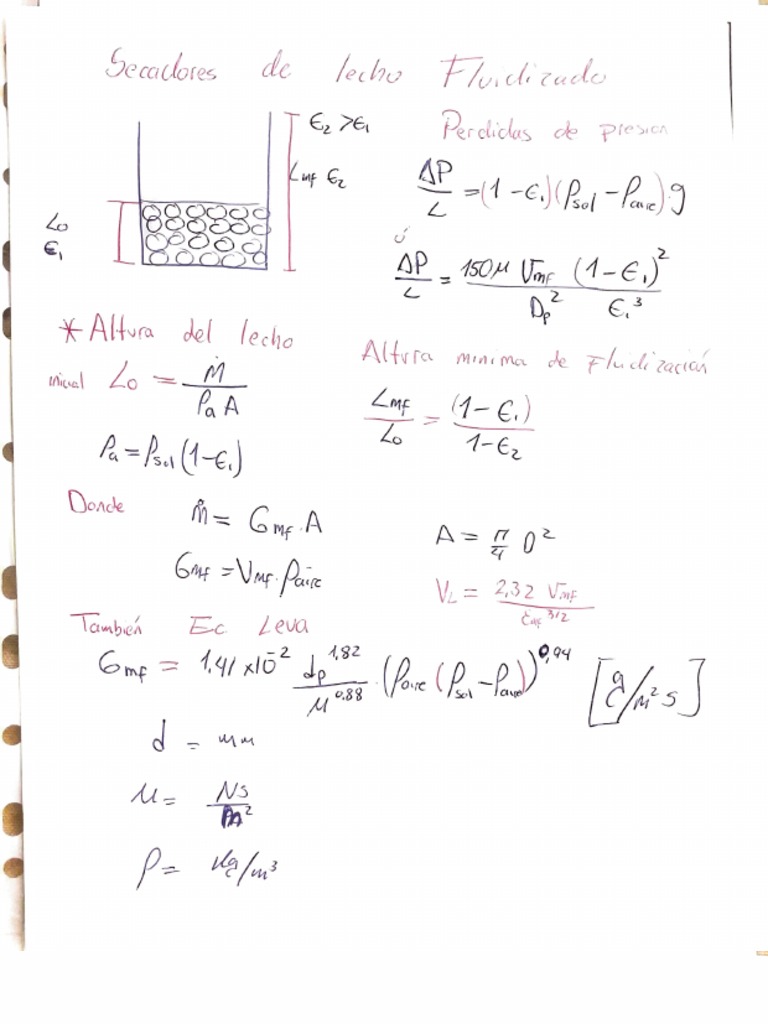 Secadores de lecho Fluidizado
ϵ₂ > ϵ₁
Lmf ϵ₂
L₀
ϵ₁
Perdidas de presion
ΔP/L = (1 - ϵ₁)(ρsol - ρaire) g
ó
ΔP/L = 150μ Vmf/Dp² (1 - ϵ₁)²/ϵ₁³
* Altura del lecho
inicial L₀ = Ṁ/(ρa A)
ρa = ρsol (1 - ϵ₁)
Altura minima de Fluidización
Lmf/L₀ = (1 - ϵ₁)/(1 - ϵ₂)
Donde
Ṁ = Gmf · A
Gmf = Vmf · ρaire
A = π/4 D²
VL = 2,32 Vmf/ϵmf^3/2
También Ec Leva
Gmf = 1,41 x10⁻² dp^1,82/μ^0.88 · (ρaire (ρsol - ρaire))^0,94 [g/m² s]
d = mm
μ = Ns/m²
ρ = Kg/m³